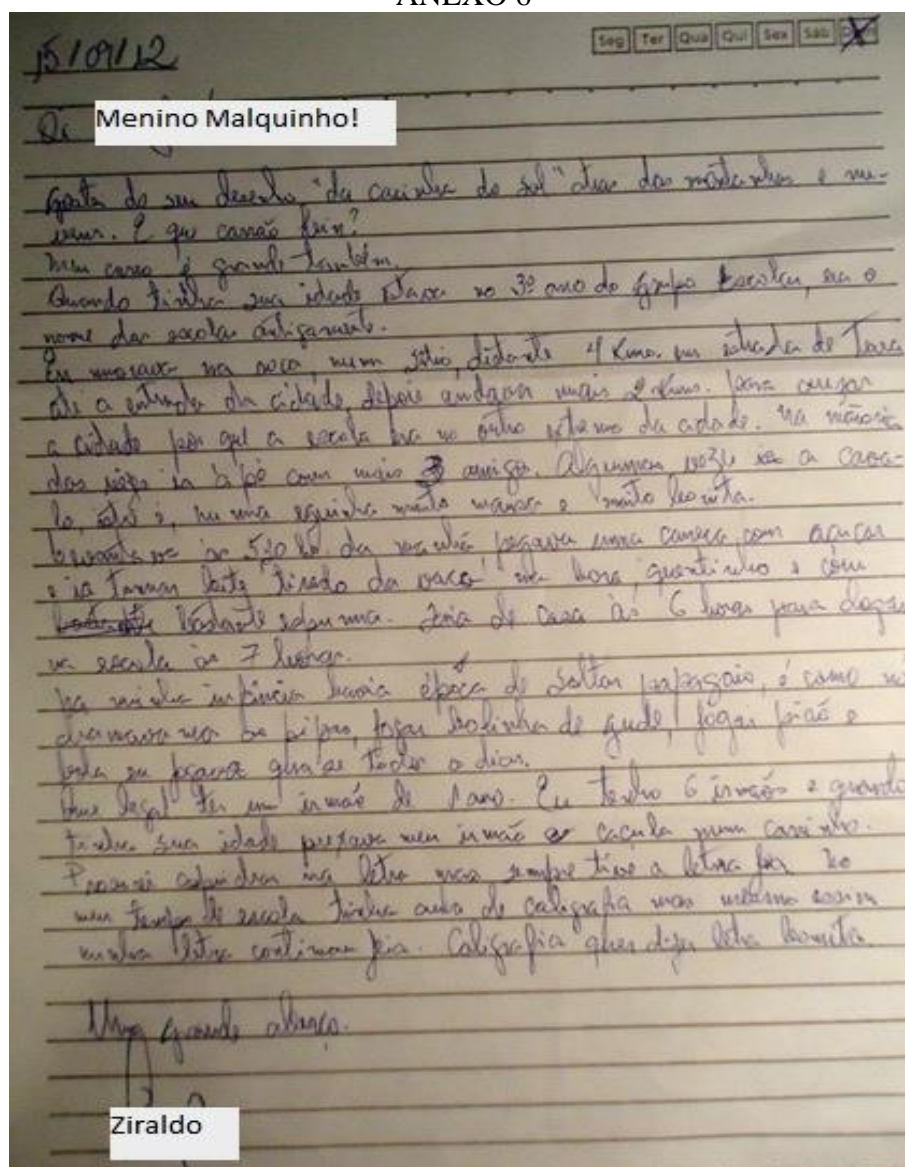 ANEXO 8
Seg Ter Qua Qui Sex Sáb
15/09/12
Oi Menino Malquinho!
Gostei do seu desenho, "da carinha do sol" atras das montanhas e nu-
vens. E que carrão hein?
Meu carro é grande também.
Quando tinha sua idade estava no 3º ano do Grupo Escolar, era o
nome das escolas antigamente.
Eu morava na roça, num sítio, distante 4 Kms. em estrada de Terra
até a entrada da cidade, depois andava mais 2 Kms. para cruzar
a cidade por que a escola era no outro extremo da cidade. Na maioria
das vezes ia à pé com mais 3 amigos. Algumas vezes ia a cava-
lo, isto é, numa eguinha muito mansa e muito bonita.
Levantava às 5:30 hs da manhã pegava uma caneca com açucar
e ia tomar leite "tirado da vaca" na hora, quentinho e com
bastante espuma. Saia de casa às 6 horas para chegar
na escola às 7 horas.
Na minha infância havia época de soltar papagaio, é como nós
chamava-mos as pipas, jogar bolinha de gude, jogar pião e
bola eu jogava quase todos o dias.
Que legal ter um irmão de 1 ano. Eu tenho 6 irmãos e quando
tinha sua idade puxava meu irmão caçula num carrinho.
Procurei caprichar na letra mas sempre tive a letra feia. No
meu tempo de escola tinha aula de caligrafia mas mesmo assim
minha letra continua feia. Caligrafia quer dizer letra bonita.
Um grande abraço.
Ziraldo